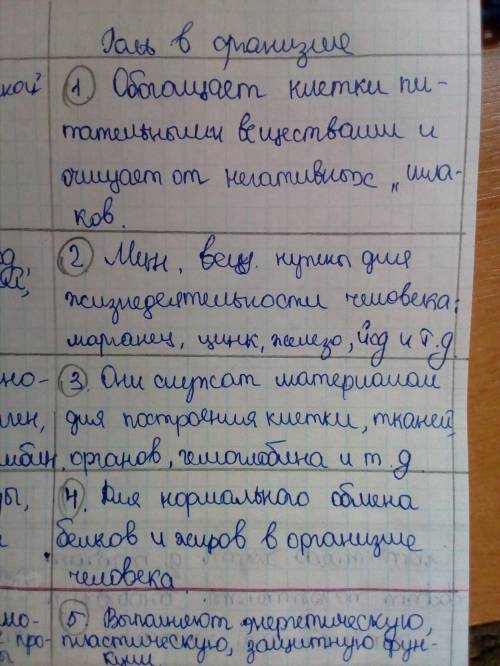 Роль в организме
кой 1 Обогащает клетки пи-
тательными веществами и
очищает от негативных „шла-
ков.
2 Мин. вещ. нужны для
жизнедеятельности человека:
марганец, цинк, железо, йод и т.д.
но- 3. Они служат материалом
лен, для построения клетки, тканей,
мбин, органов, гемоглобина и т.д
ы, 4. Для нормального обмена
белков и жиров в организме
человека
мо- 5 Выполняют энергетическую,
про- пластическую, защитную фун-
ы кции.